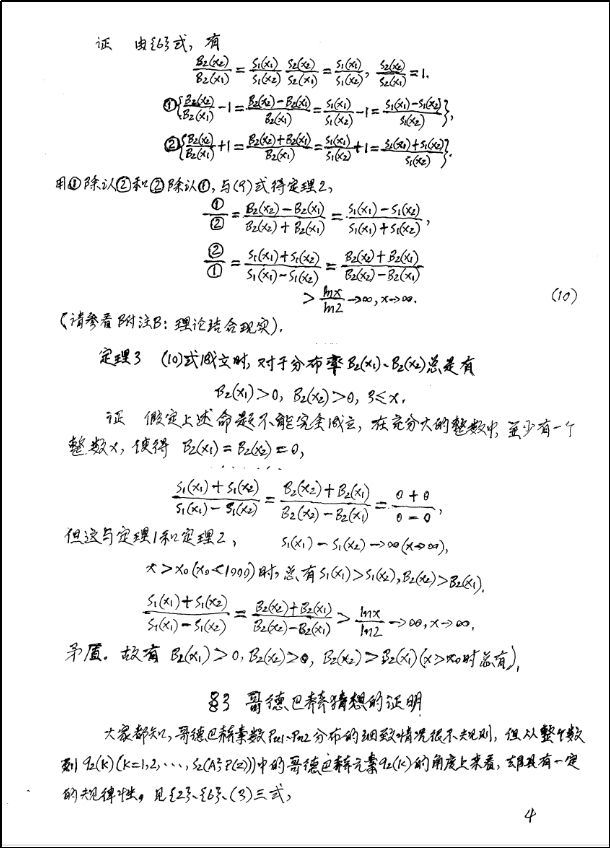 证 由{6}式, 有
B₂(x₂)/B₂(x₁) = S₁(x₁)/S₁(x₂) · S₂(x₂)/S₂(x₁) = S₁(x₁)/S₁(x₂), S₂(x₂)/S₂(x₁) = 1.
①{B₂(x₂)/B₂(x₁) - 1 = (B₂(x₂) - B₂(x₁))/B₂(x₁) = S₁(x₁)/S₁(x₂) - 1 = (S₁(x₁) - S₁(x₂))/S₁(x₂)},
②{B₂(x₂)/B₂(x₁) + 1 = (B₂(x₂) + B₂(x₁))/B₂(x₁) = S₁(x₁)/S₁(x₂) + 1 = (S₁(x₁) + S₁(x₂))/S₁(x₂)}.
用①除以②和②除以①, 与(9)式得定理2,
①/② = (B₂(x₂) - B₂(x₁))/(B₂(x₂) + B₂(x₁)) = (S₁(x₁) - S₁(x₂))/(S₁(x₁) + S₁(x₂)),
②/① = (S₁(x₁) + S₁(x₂))/(S₁(x₁) - S₁(x₂)) = (B₂(x₂) + B₂(x₁))/(B₂(x₂) - B₂(x₁))
> lnx/ln2 →∞, x→∞. (10)
(请参看附注B: 理论结合现实).
定理3 (10)式成立时, 对于分布率B₂(x₁)、B₂(x₂)总是有
B₂(x₁) > 0, B₂(x₂) > 0, 3 ≤ x.
证 假定上述命题不能完全成立, 在充分大的整数中, 至少有一个
整数x, 使得 B₂(x₁) = B₂(x₂) = 0,
(S₁(x₁) + S₁(x₂))/(S₁(x₁) - S₁(x₂)) = (B₂(x₂) + B₂(x₁))/(B₂(x₂) - B₂(x₁)) = (0 + 0)/(0 - 0),
但这与定理1和定理2, S₁(x₁) - S₁(x₂) →∞(x→∞),
x > x₀(x₀<1000)时, 总有S₁(x₁) > S₁(x₂), B₂(x₂) > B₂(x₁),
(S₁(x₁) + S₁(x₂))/(S₁(x₁) - S₁(x₂)) = (B₂(x₂) + B₂(x₁))/(B₂(x₂) - B₂(x₁)) > lnx/ln2 →∞, x→∞.
矛盾. 故有 B₂(x₁) > 0, B₂(x₂) > 0, B₂(x₂) > B₂(x₁) (x > x₀时总有),
§3 哥德巴赫猜想的证明
大家都知, 哥德巴赫素数 分布的细致情况很不规则, 但从整个数
列 q₂(k)(k=1,2,···, )中的哥德巴赫元素q₂(k)的角度上来看, 却具有一定
的规律性, 见{2}、{6}、(3)三式,
4